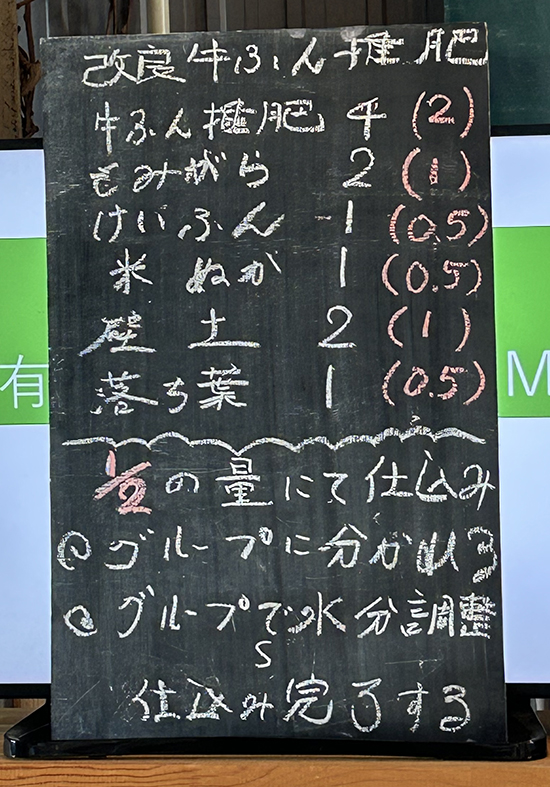 改良牛ふん堆肥
牛ふん堆肥 4 (2)
もみがら 2 (1)
けいふん 1 (0.5)
米ぬか 1 (0.5)
壁土 2 (1)
落ち葉 1 (0.5)
1/2の量にて仕込み
@グループに分かれる
@グループで水分調整
S
仕込み完了する
有
M